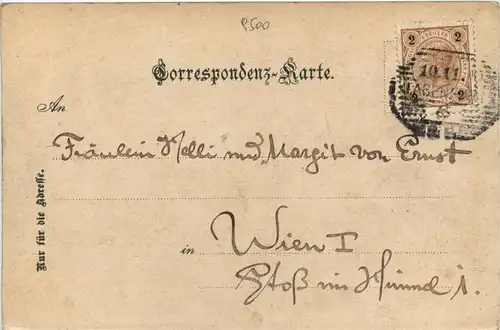 P500
2 KREUZER 2
10.11
Correspondenz-Karte.
An
Fräulein Nelli und Margit von Ernst
in Wien I
Stoß im Himmel 1.
Nur für die Adresse.